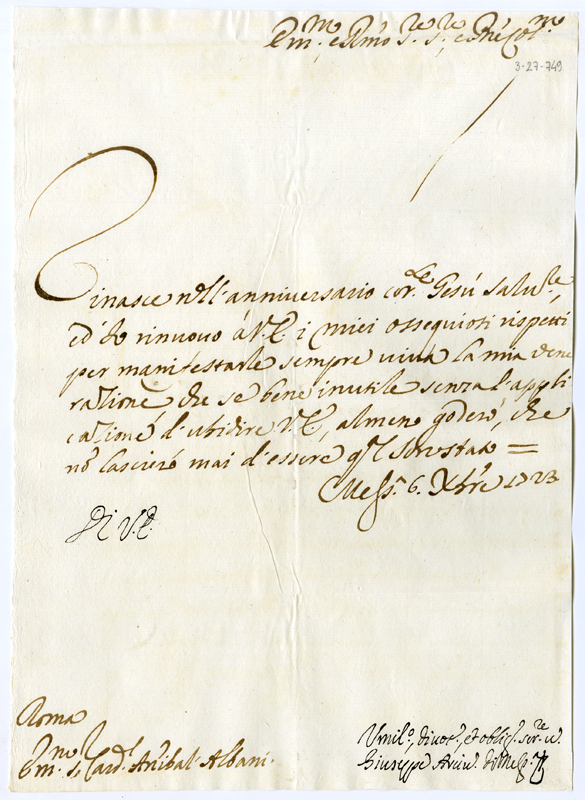 Em.mo e R.mo S.re S.re, e P.ne Col.mo
3-27-749
Rinasce nell'anniversario cor.te Gesù Salv.re,
ed Io rinuovo à V.E. i miei ossequiosi rispetti
per manifestarle sempre viva la mia vene
razione, che se bene inutile senza l'appli
catione d'ubidire V.E., almeno goderò, che
nō lascierò mai d'essere q.l sono stato =
Mess.a 6. Xbre 1723
Di V.E.
Roma
Em.mo S. Card.l Anībal Albani.
Vmil.o, divot.o, et oblig.o ser.re v.
Giuseppe Arciv.o di Mess.a